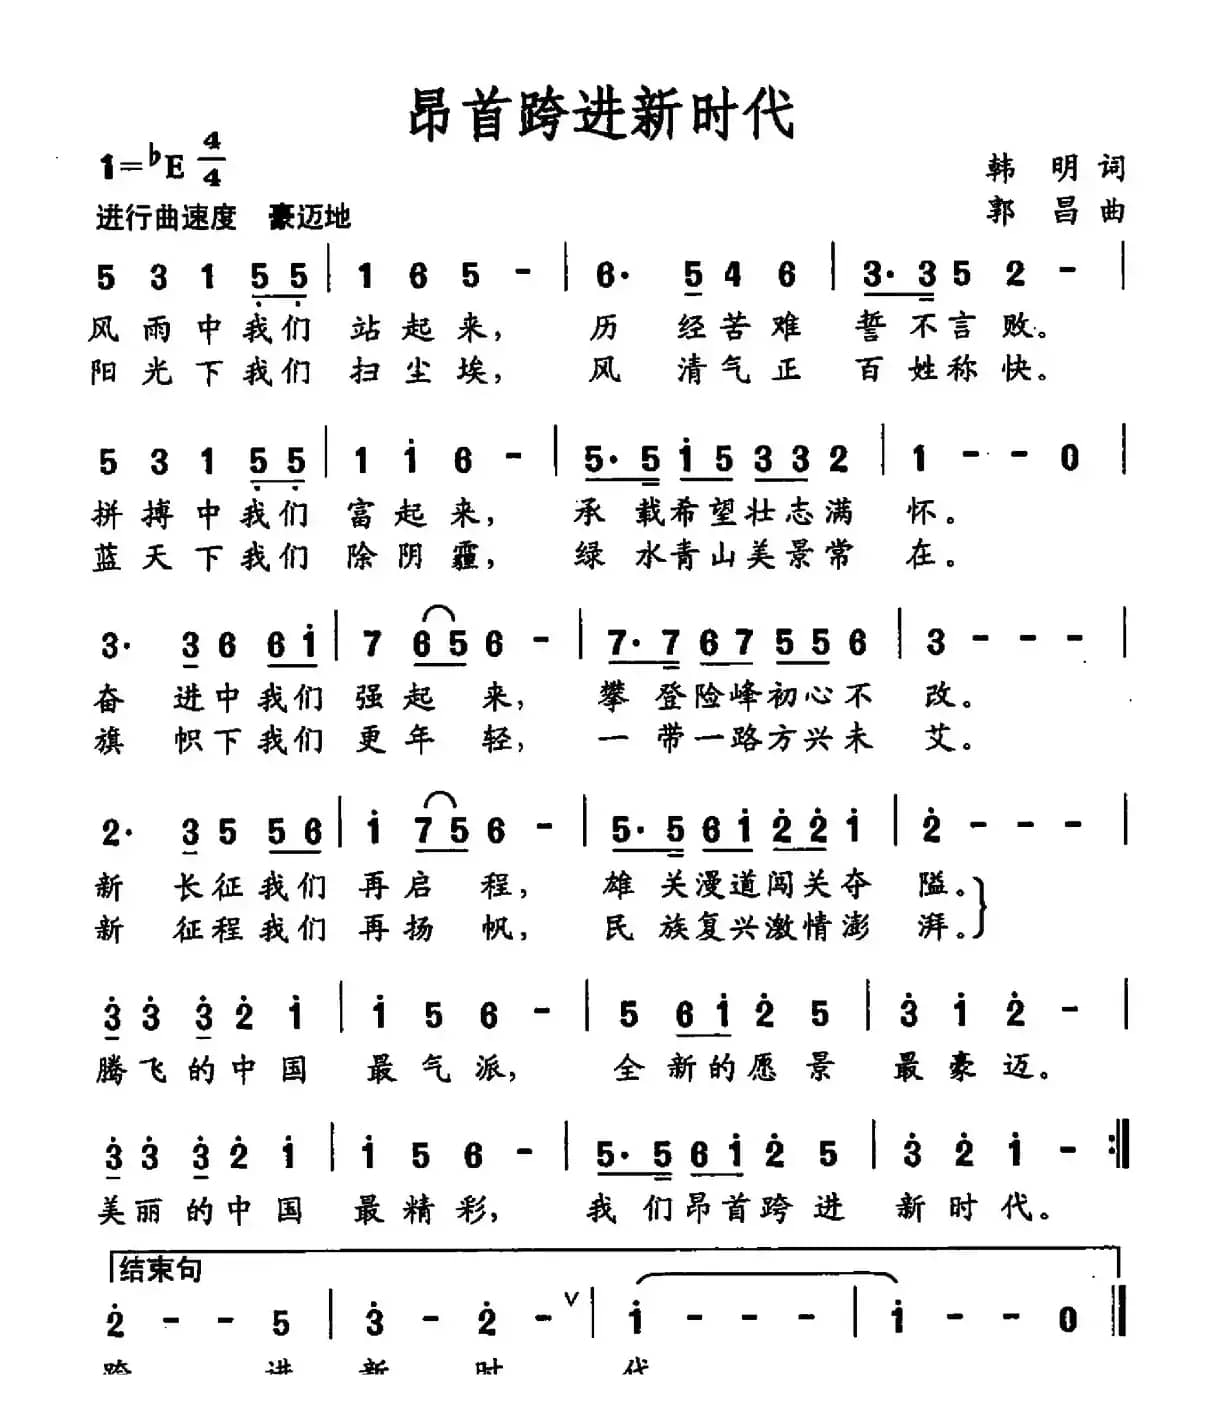 昂首跨进新时代
1=♭E 4/4
韩 明 词
进行曲速度 豪迈地
郭 昌 曲
5 3 1 5̣ 5̣ | 1 6 5 - | 6· 5 4 6 | 3· 3 5 2 - |
风 雨 中 我 们 站 起 来, 历 经 苦 难 誓 不 言 败。
阳 光 下 我 们 扫 尘 埃, 风 清 气 正 百 姓 称 快。
5 3 1 5̣ 5̣ | 1 1̇ 6 - | 5· 5 1̇ 5 3 3 2 | 1 - - 0 |
拼 搏 中 我 们 富 起 来, 承 载 希 望 壮 志 满 怀。
蓝 天 下 我 们 除 阴 霾, 绿 水 青 山 美 景 常 在。
3· 3 6 6 1̇ | 7 6 5 6 - | 7· 7 6 7 5 5 6 | 3 - - - |
奋 进 中 我 们 强 起 来, 攀 登 险 峰 初 心 不 改。
旗 帜 下 我 们 更 年 轻, 一 带 一 路 方 兴 未 艾。
2· 3 5 5 6 | 1̇ 7 5 6 - | 5· 5 6 1̇ 2̇ 2̇ 1̇ | 2̇ - - - |
新 长 征 我 们 再 启 程, 雄 关 漫 道 闯 关 夺 隘。
新 征 程 我 们 再 扬 帆, 民 族 复 兴 激 情 澎 湃。
3̇ 3̇ 3̇ 2̇ 1̇ | 1̇ 5 6 - | 5 6 1̇ 2̇ 5 | 3̇ 1̇ 2̇ - |
腾 飞 的 中 国 最 气 派, 全 新 的 愿 景 最 豪 迈。
3̇ 3̇ 3̇ 2̇ 1̇ | 1̇ 5 6 - | 5· 5 6 1̇ 2̇ 5 | 3̇ 2̇ 1̇ - :‖
美 丽 的 中 国 最 精 彩, 我 们 昂 首 跨 进 新 时 代。
结束句
2̇ - - 5 | 3̇ - 2̇ - ∨ | 1̇ - - - | 1̇ - - 0 ‖
跨 进 新 时 代